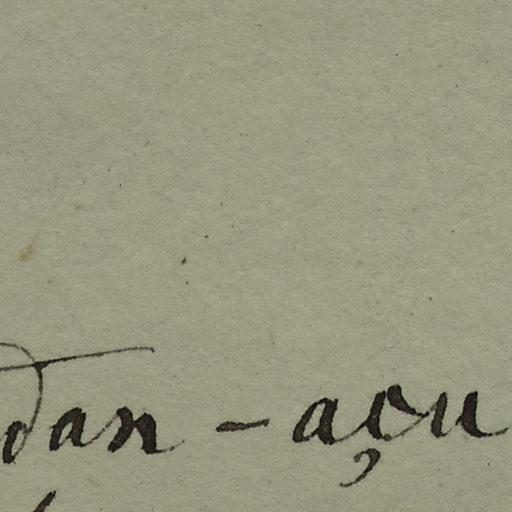 dan - açu